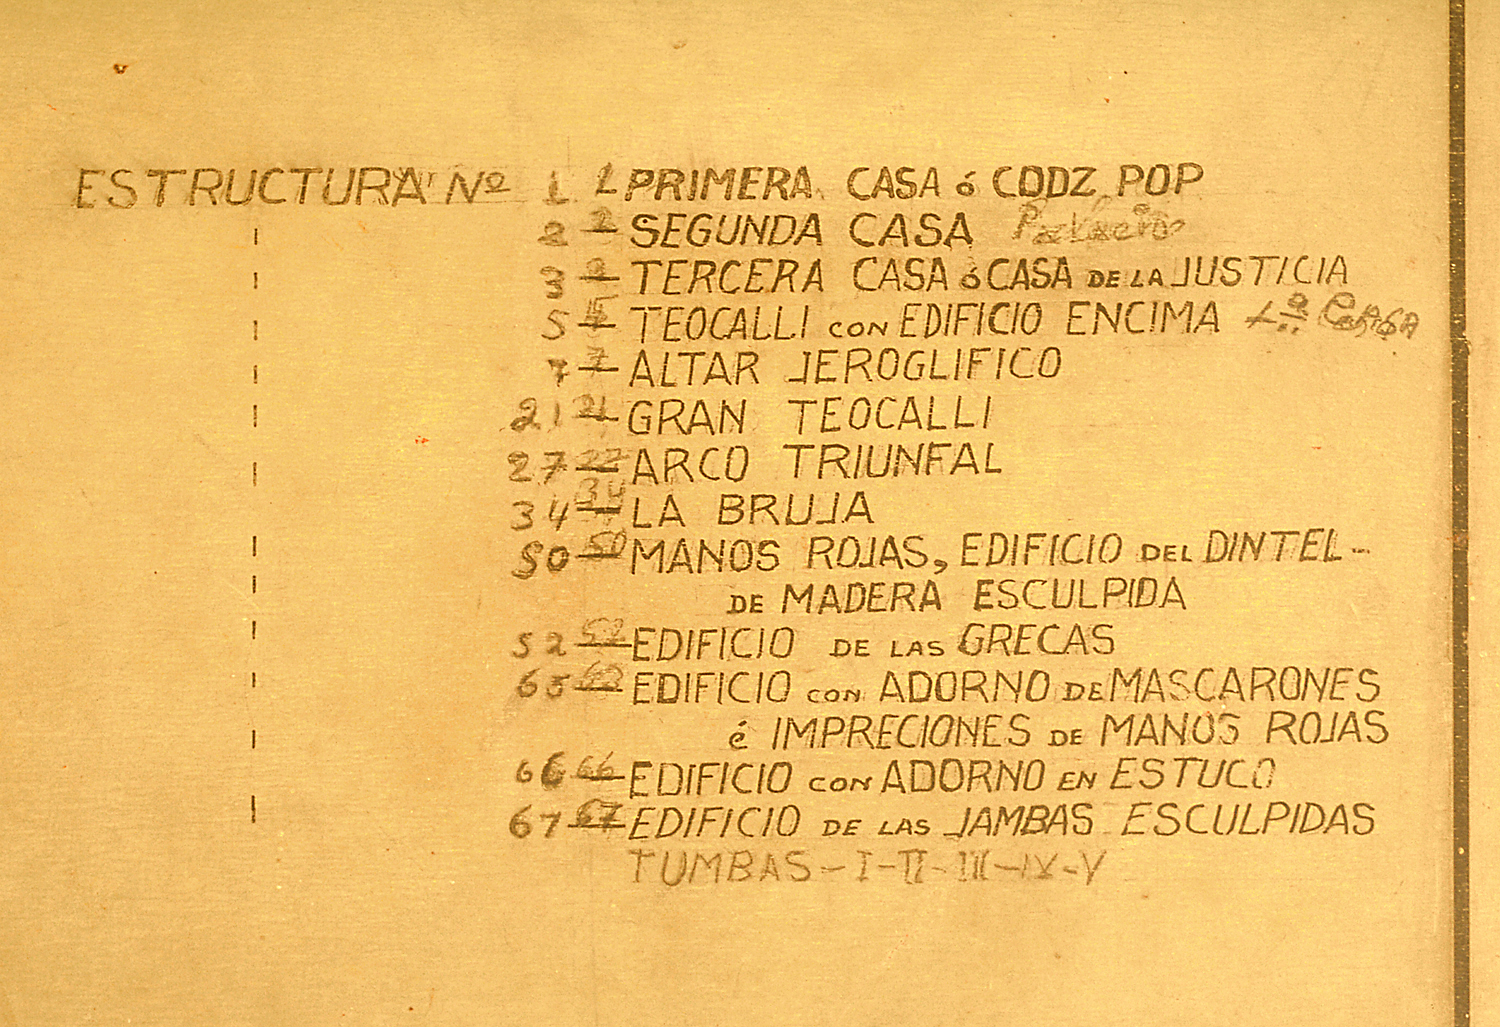 ESTRUCTURA Nº 1 1 PRIMERA CASA ó CODZ POP
2 2 SEGUNDA CASA Palacio
3 3 TERCERA CASA ó CASA DE LA JUSTICIA
5 5 TEOCALLI CON EDIFICIO ENCIMA
7 7 ALTAR JEROGLIFICO
21 21 GRAN TEOCALLI
27 27 ARCO TRIUNFAL
34 34 LA BRUJA
50 50 MANOS ROJAS, EDIFICIO DEL DINTEL-
DE MADERA ESCULPIDA
52 52 EDIFICIO DE LAS GRECAS
65 EDIFICIO CON ADORNO DE MASCARONES
é IMPRECIONES DE MANOS ROJAS
66 66 EDIFICIO CON ADORNO EN ESTUCO
67 67 EDIFICIO DE LAS JAMBAS ESCULPIDAS
TUMBAS-I-II-III-IV-V